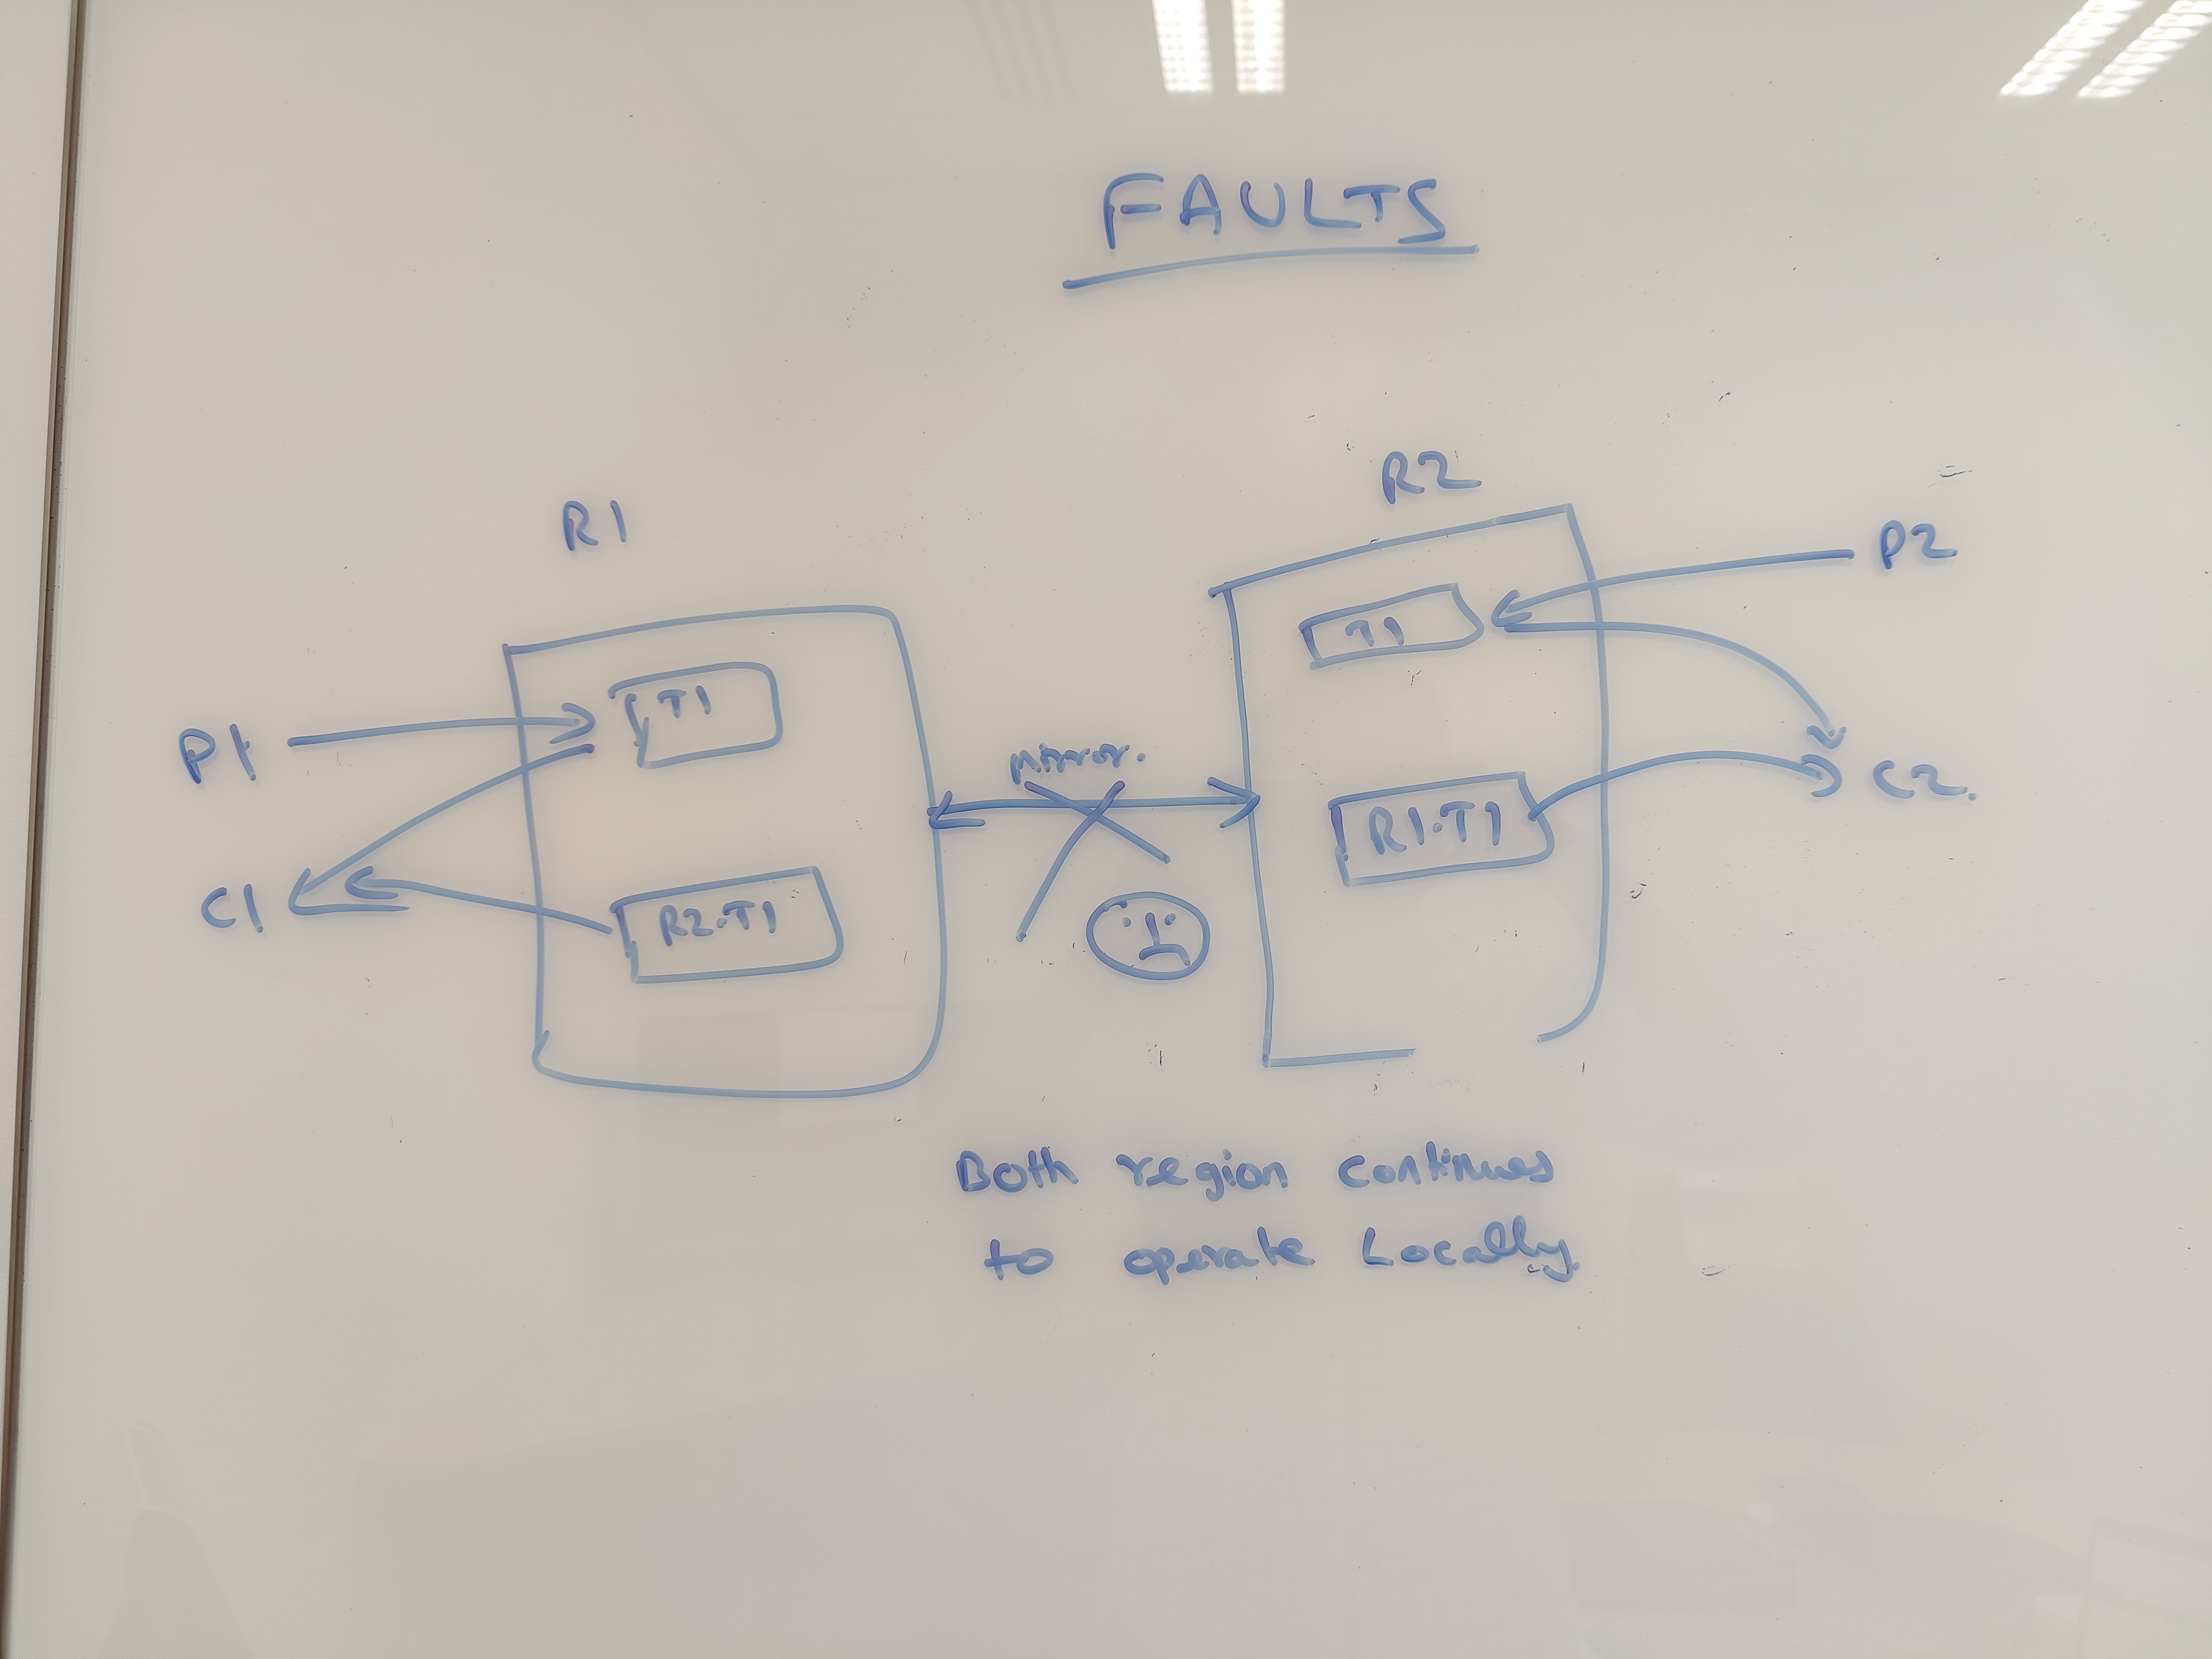 FAULTS
R1
R2
P2
T1
T1
P1
mirror.
C2.
R1.T1
C1
R2.T1
Both region continues
to operate Locally.